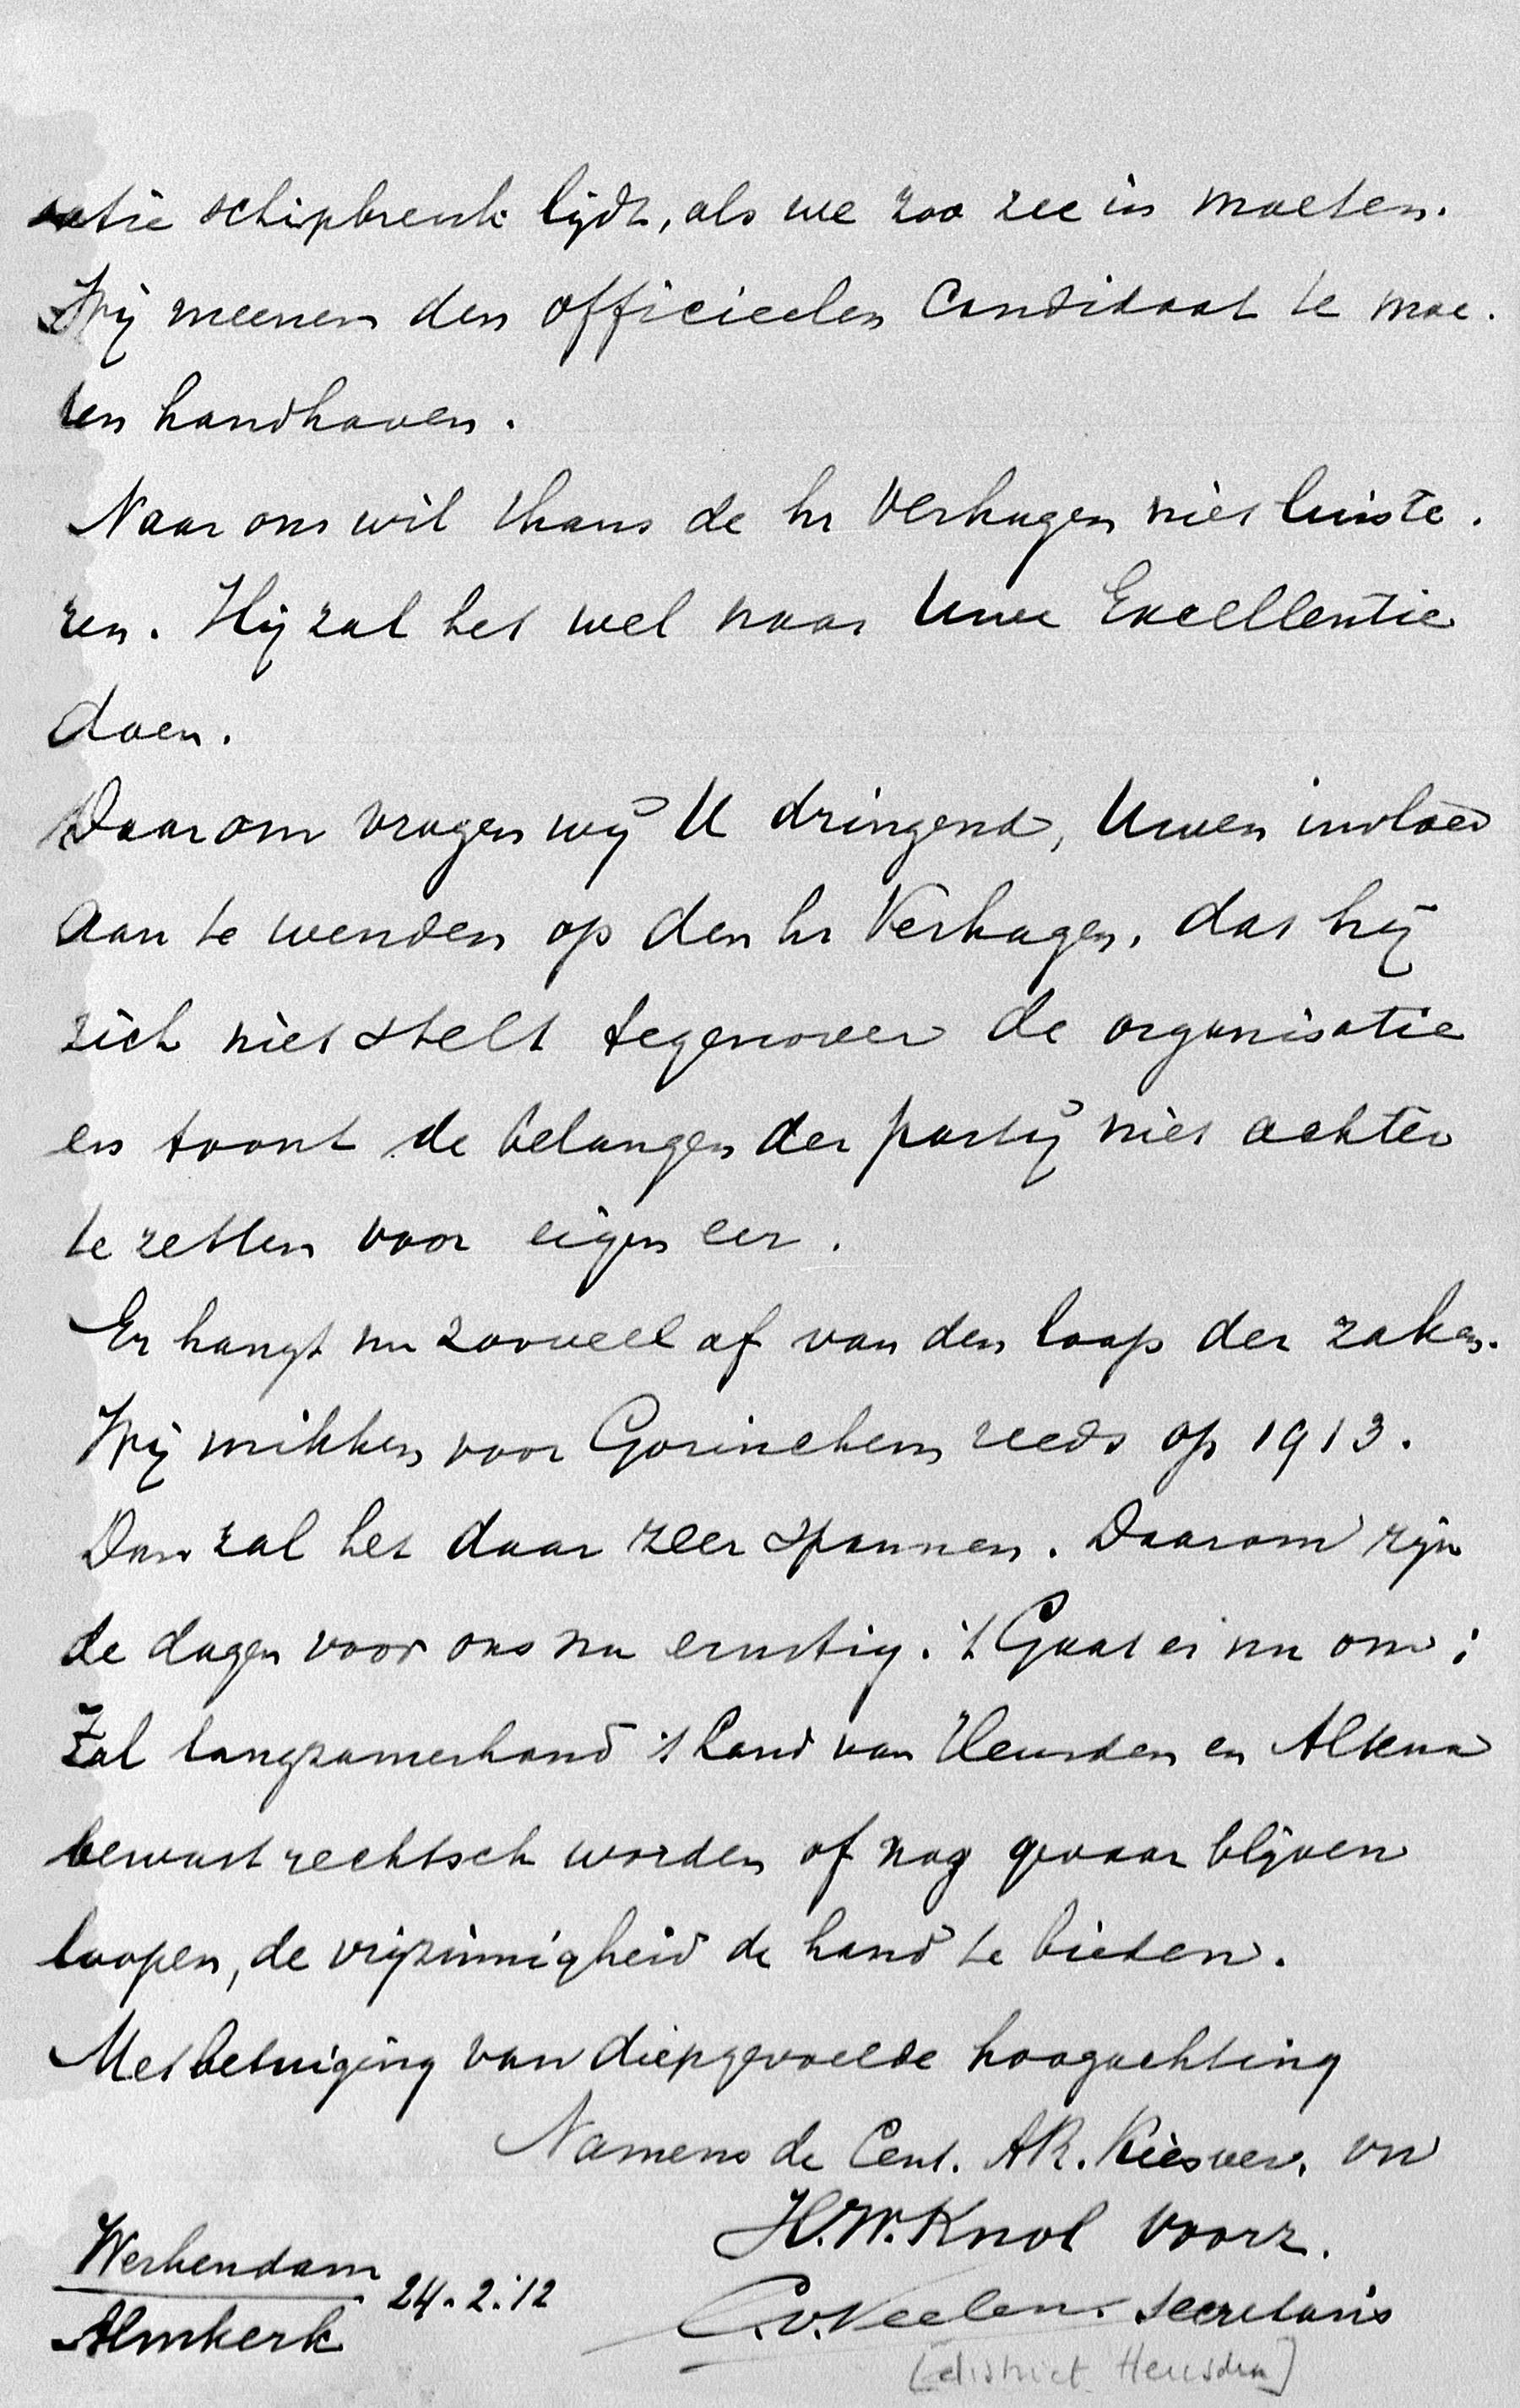 satie schipbreuk lijdt, als we zoo zee in moeten.
Wij meenen den officieelen Candidaat te moe-
ten handhaven.
Naar ons wil thans de hr Verhagen niet luiste-
ren. Hij zal het wel naar Uwe Excellentie
doen.
Daarom vragen wij U dringend, Uwen invloed
aan te wenden op den hr Verhagen, dat hij
zich niet stelt tegenover de organisatie
en toont de belangen der partij niet achter
te zetten voor eigen eer.
Er hangt nu zooveel af van den loop der zaken.
Wij mikken voor Gorinchem reeds op 1913.
Dan zal het daar zeer spannen. Daarom zijn
de dagen voor ons nu ernstig. 't Gaat er nu om:
Zal langzamerhand 't Land van Heusden en Altena
bewust rechtsch worden of nog gevaar blijven
loopen, de vrijzinnigheid de hand te bieden.
Met betuiging van diepgevoelde hoogachting
Namens de Cent. AR. Kiesver. vn
H.W. Knol Voorz.
Werkendam
Almkerk 24.2.'12
C. v. Veelen. secretaris
[district Heusden]